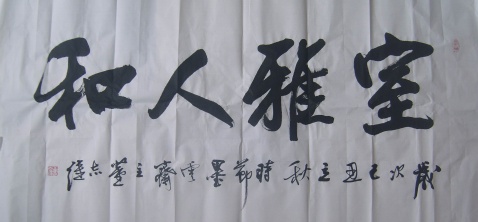 室雅人和
歲次己丑立秋時節墨雲齋主董志偉